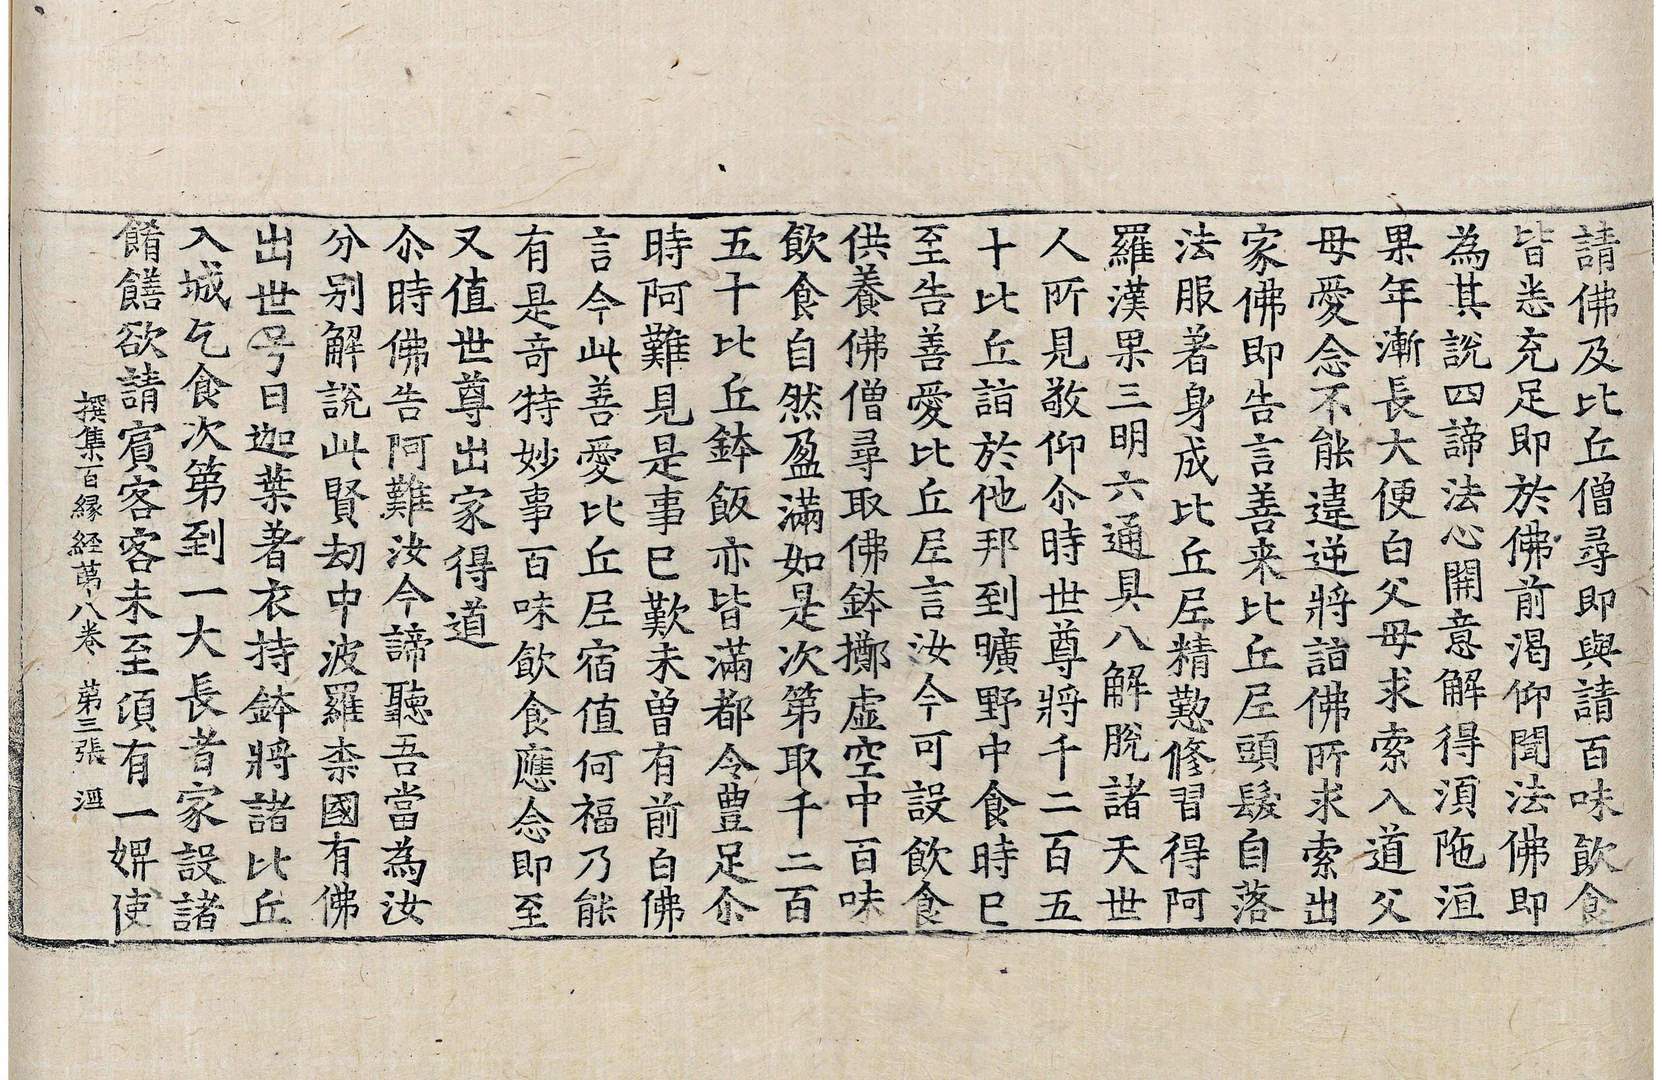 請佛及比丘僧尋即與請百味飲食
皆悉充足即於佛前渴仰聞法佛即
為其說四諦法心開意解得湏陁洹
果年漸長大便白父母求索入道父
母愛念不能違逆將詣佛所求索出
家佛即告言善来比丘尼頭髮自落
法服著身成比丘尼精懃修習得阿
羅漢果三明六通具八解脫諸天世
人所見敬仰尒時世尊將千二百五
十比丘詣於他邦到曠野中食時已
至告善愛比丘尼言汝今可設飲食
供養佛僧尋取佛鉢擲虛空中百味
飲食自然盈滿如是次第取千二百
五十比丘鉢飯亦皆滿都令豊足尒
時阿難見是事已歎未曾有前白佛
言今此善愛比丘尼宿值何福乃能
有是竒特妙事百味飲食應念即至
又值世尊出家得道
尒時佛告阿難汝今諦聽吾當為汝
分別解說此賢劫中波羅柰國有佛
出世号曰迦葉著衣持鉢將諸比丘
入城乞食次第到一大長者家設諸
餚饍欲請賓客客未至頃有一婢使
撰集百緣経苐八卷 第三張 涇